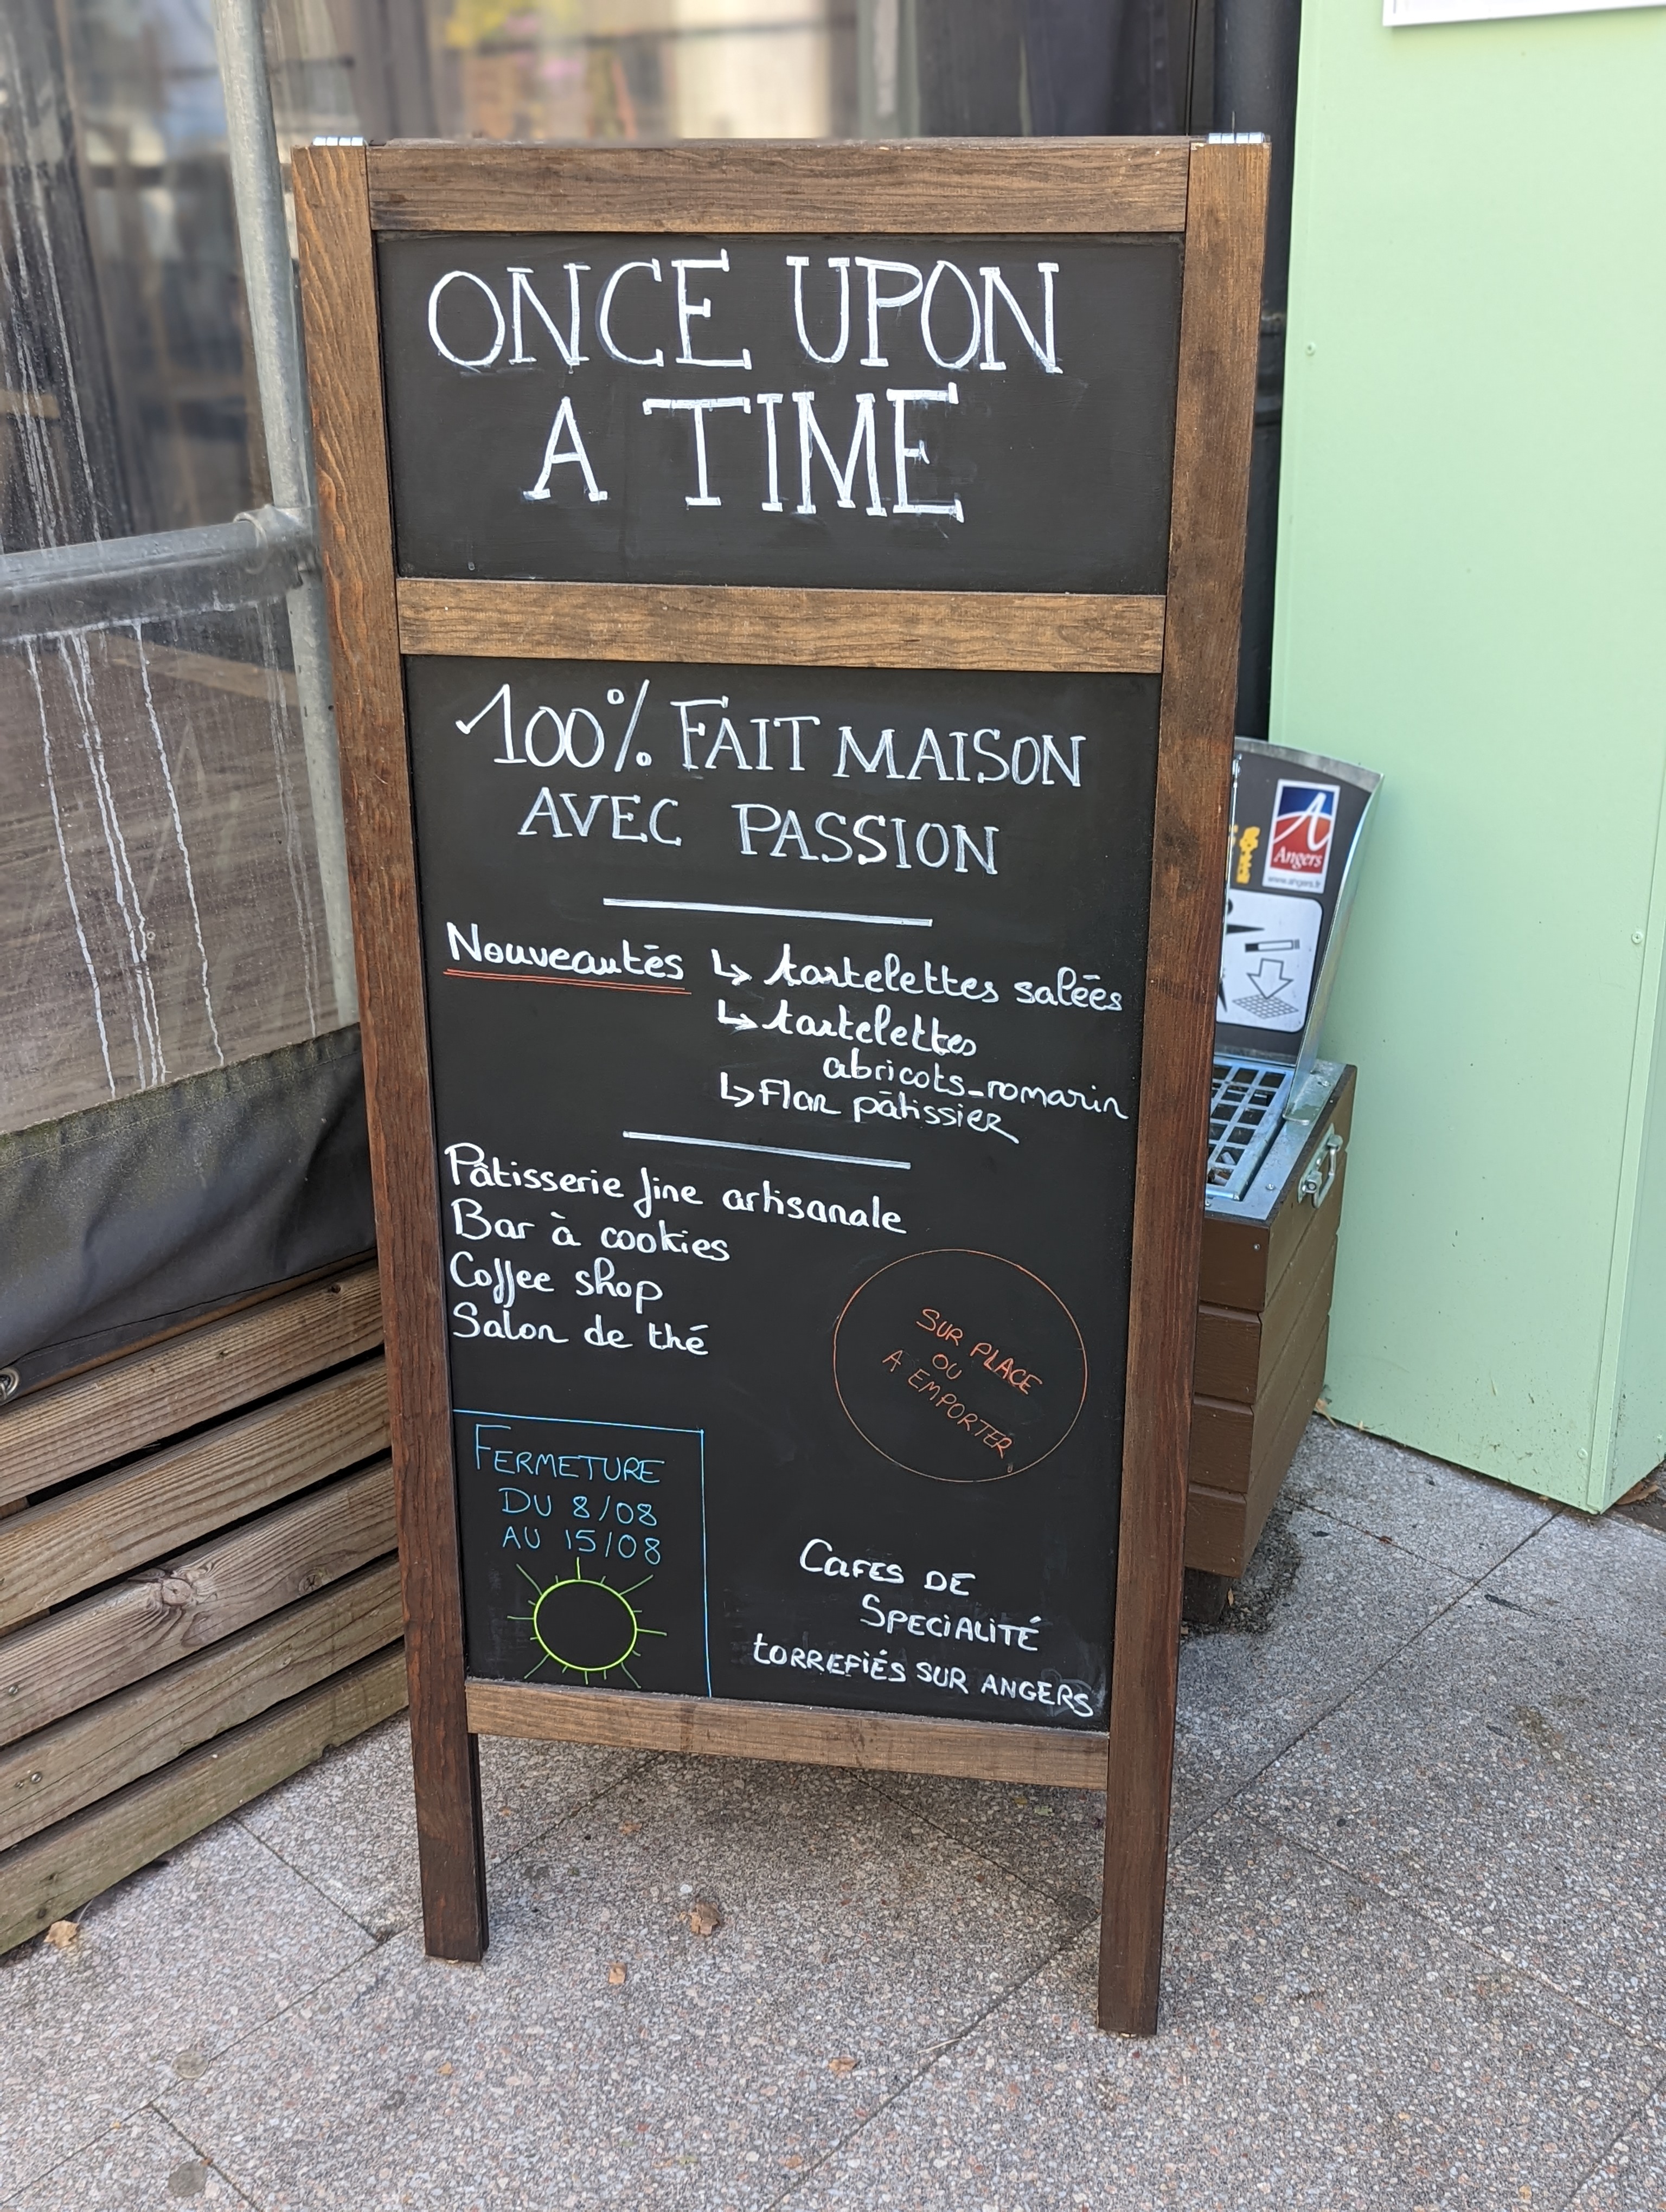 ONCE UPON
A TIME
100% FAIT MAISON
AVEC PASSION
Nouveautés ↳ tartelettes salées
↳ tartelettes
abricots-romarin
↳ Flan pâtissier
Pâtisserie fine artisanale
Bar à cookies
Coffee shop
Salon de thé
SUR PLACE
OU
A EMPORTER
FERMETURE
DU 8/08
AU 15/08
CAFES DE
SPECIALITÉ
TORREFIÉS SUR ANGERS
A
Angers
www.angers.fr